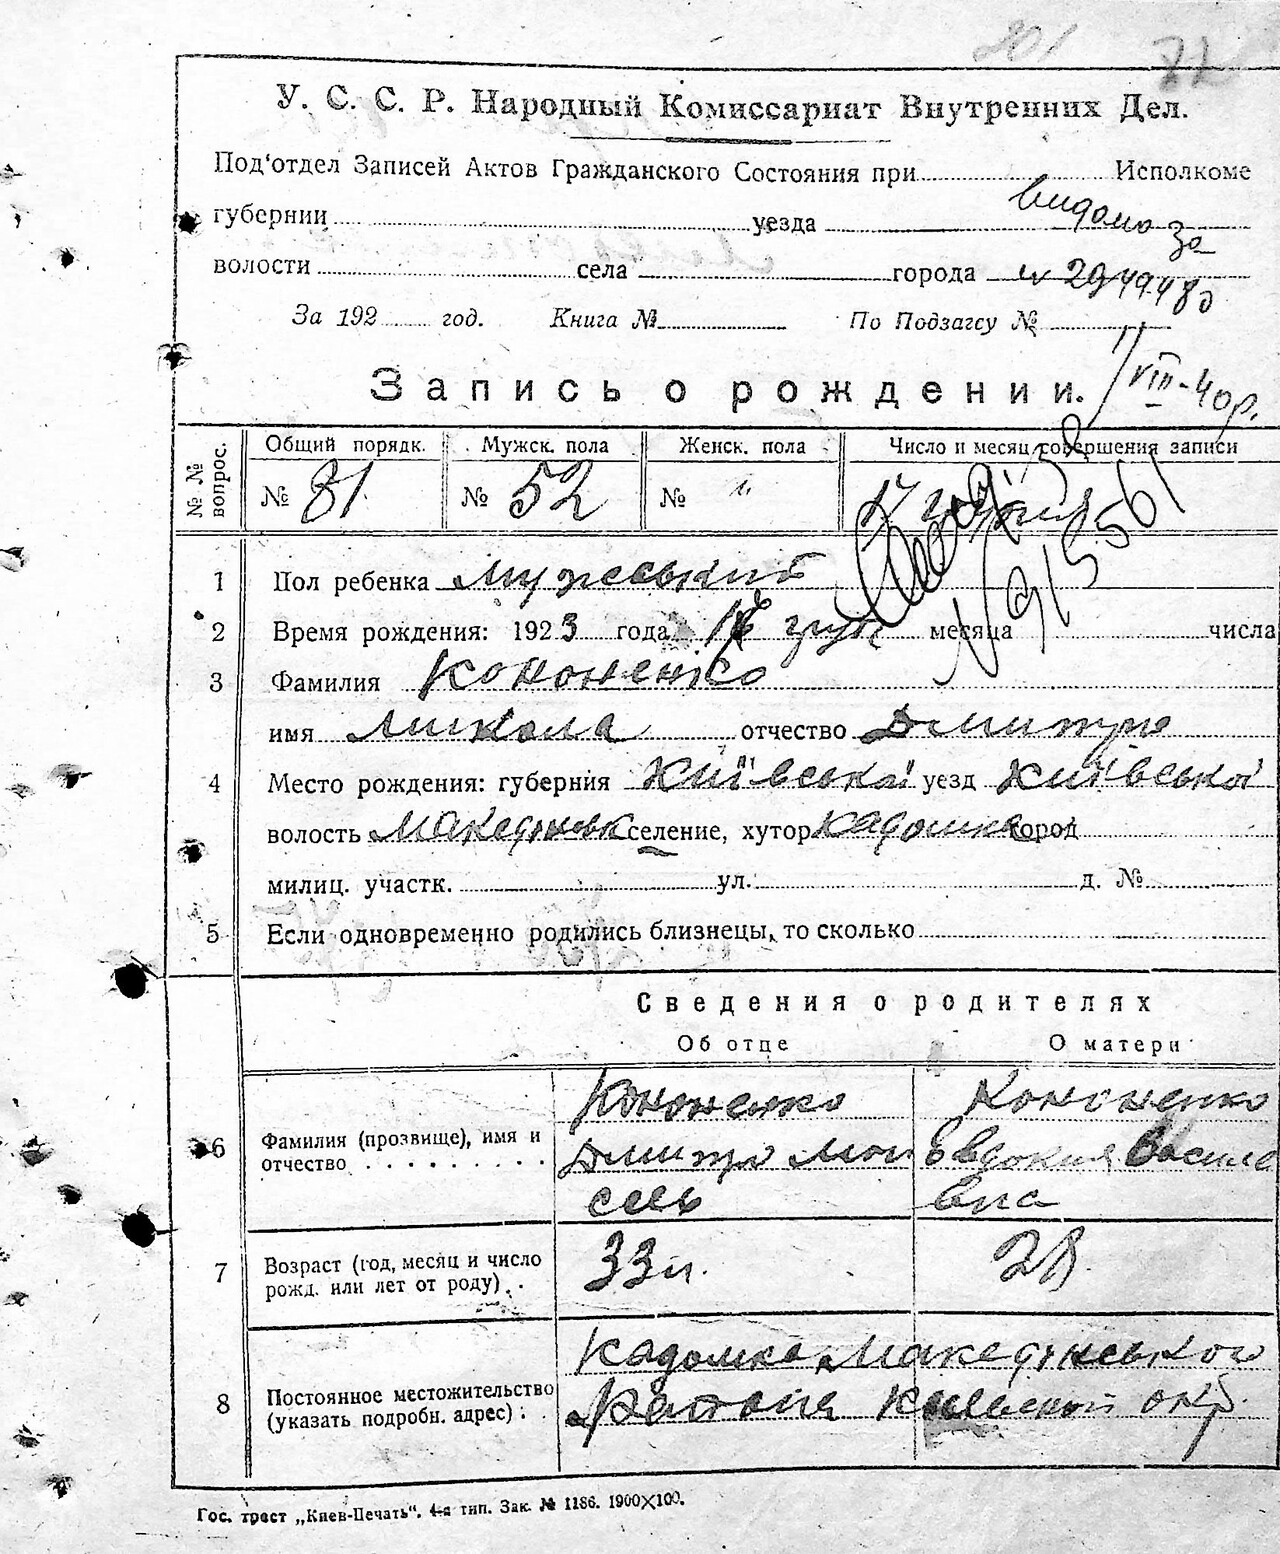 201
У. С. С. Р. Народный Комиссариат Внутренних Дел.
Под'отдел Записей Актов Гражданского Состояния при Исполкоме
губернии уезда видано
за
волости села города № 2949485
За 192 год. Книга № По Подзагсу №
1/VIII-40р.
Запись о рождении.
№ № вопрос. Общий порядк. Мужск. пола Женск. пола Число и месяц совершения записи
№ 81 № 52 № " 17 грудня
№ 915561
1 Пол ребенка Мужеський
2 Время рождения: 1923 года груд месяца числа
3 Фамилия Кононенко
имя Микола отчество Дмитро
4 Место рождения: губерния Київської уезд Київської
волость Македунск селение, хутор Кадомка город
милиц. участк. ул. д. №
5 Если одновременно родились близнецы, то сколько
Сведения о родителях
Об отце О матери
6 Фамилия (прозвище), имя и отчество
Кононенко Дмитро Мой
сеєв
Кононенко Евдокия Василе
вна
7 Возраст (год, месяц и число рожд. или лет от роду)
33 л. 28
8 Постоянное местожительство (указать подробн. адрес)
Кадомка Македунського
Района Киевской окр.
Гос. трест „Киев-Печать". 4-я тип. Зак. № 1186. 1900×100.